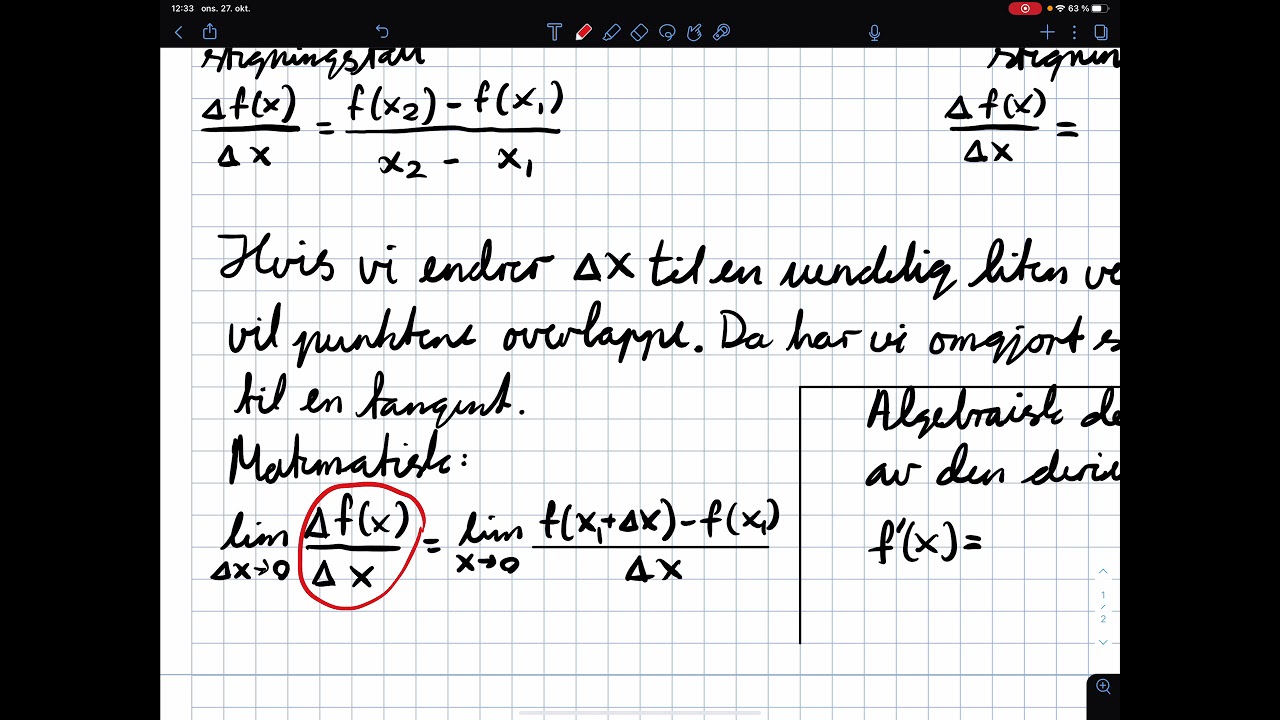 12:33 ons. 27. okt.
63 %
stigningstall
Δf(x)/Δx = f(x₂) - f(x₁)/x₂ - x₁
stignin
Δf(x)/Δx =
Hvis vi endrer Δx til en uendelig liten ve
vil punktene overlappe. Da har vi omgjort s
til en tangent.
Matematisk:
lim Δx→0 Δf(x)/Δx = lim x→0 f(x₁+Δx)-f(x₁)/Δx
Algebraisk de
av den deriv
f'(x)=
1
/
2